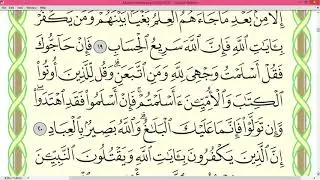 إِلَّا مِنۢ بَعْدِ مَا جَآءَهُمُ ٱلْعِلْمُ بَغْيَۢا بَيْنَهُمْ ۗ وَمَن يَكْفُرْ
بِـَٔايَٰتِ ٱللَّهِ فَإِنَّ ٱللَّهَ سَرِيعُ ٱلْحِسَابِ ١٩ فَإِنْ حَآجُّوكَ
فَقُلْ أَسْلَمْتُ وَجْهِىَ لِلَّهِ وَمَنِ ٱتَّبَعَنِ ۗ وَقُل لِّلَّذِينَ أُوتُوا۟
ٱلْكِتَٰبَ وَٱلْأُمِّيِّـۧنَ ءَأَسْلَمْتُمْ ۚ فَإِنْ أَسْلَمُوا۟ فَقَدِ ٱهْتَدَوا۟ ۖ
وَّإِن تَوَلَّوْا۟ فَإِنَّمَا عَلَيْكَ ٱلْبَلَٰغُ ۗ وَٱللَّهُ بَصِيرٌۢ بِٱلْعِبَادِ ٢٠
إِنَّ ٱلَّذِينَ يَكْفُرُونَ بِـَٔايَٰتِ ٱللَّهِ وَيَقْتُلُونَ ٱلنَّبِيِّـۧنَ